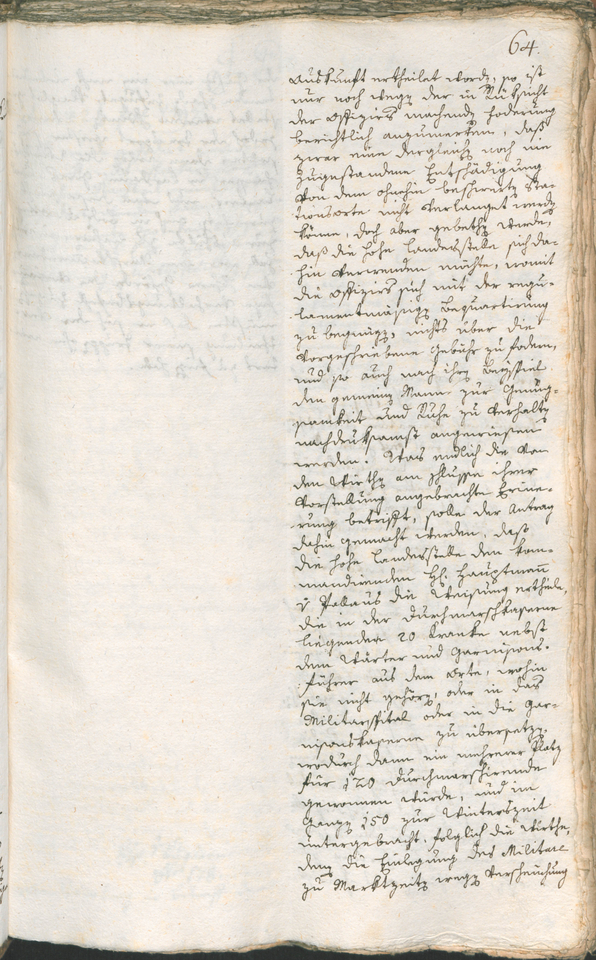 64.
Auskunft ertheilet word, so ist
nur noch weg der in Rüksicht
der Offiziers machend Foderung
berichtlich anzumerken, daß
zwar eine dergleich noch nie
zugestandene Entschädigung
von dem ohnehin beschwert Sta-
tionsorte nicht verlanget werd
könne, doch aber gebeth werde,
daß die hohe Landesstelle sich da-
hin verwenden möchte, womit
die Offiziers sich mit der regu-
lamentmäßig Bequartirung
zu begnüg, nichts über die
vorgeschriebene Gebühr zu fodern,
und so auch nach ihr Beyspiel
den gemein Mann zur Genüg-
samkeit und Ruhe zu verhalt
nachdruksamst angewiesen
werden. Was endlich die von
den Wirth am Schlusse ihrer
Vorstellung angebrachte Erinne-
rung betrifft, solle der Antrag
dahin gemacht werden, daß
die hohe Landesstelle dem kom-
mandirenden H. Hauptmann
v Pallaus die Weisung ertheile,
die in der Durchmarschkaserne
liegenden 20 Kranke nebst
dem Wärter und Garnisons-
führer aus dem Orte, wohin
sie nicht gehör, oder in das
Militarspital oder in die Gar-
nisonskaserne zu übersetz,
wodurch dann ein mehrerer Platz
für 120 Durchmarschirende
gewonnen würde, und im
Ganz 150 zur Winterszeit
untergebracht, folglich die Wirthe,
denen die Einlegung des Militare
zu Marktzeit weg Verscheuchung